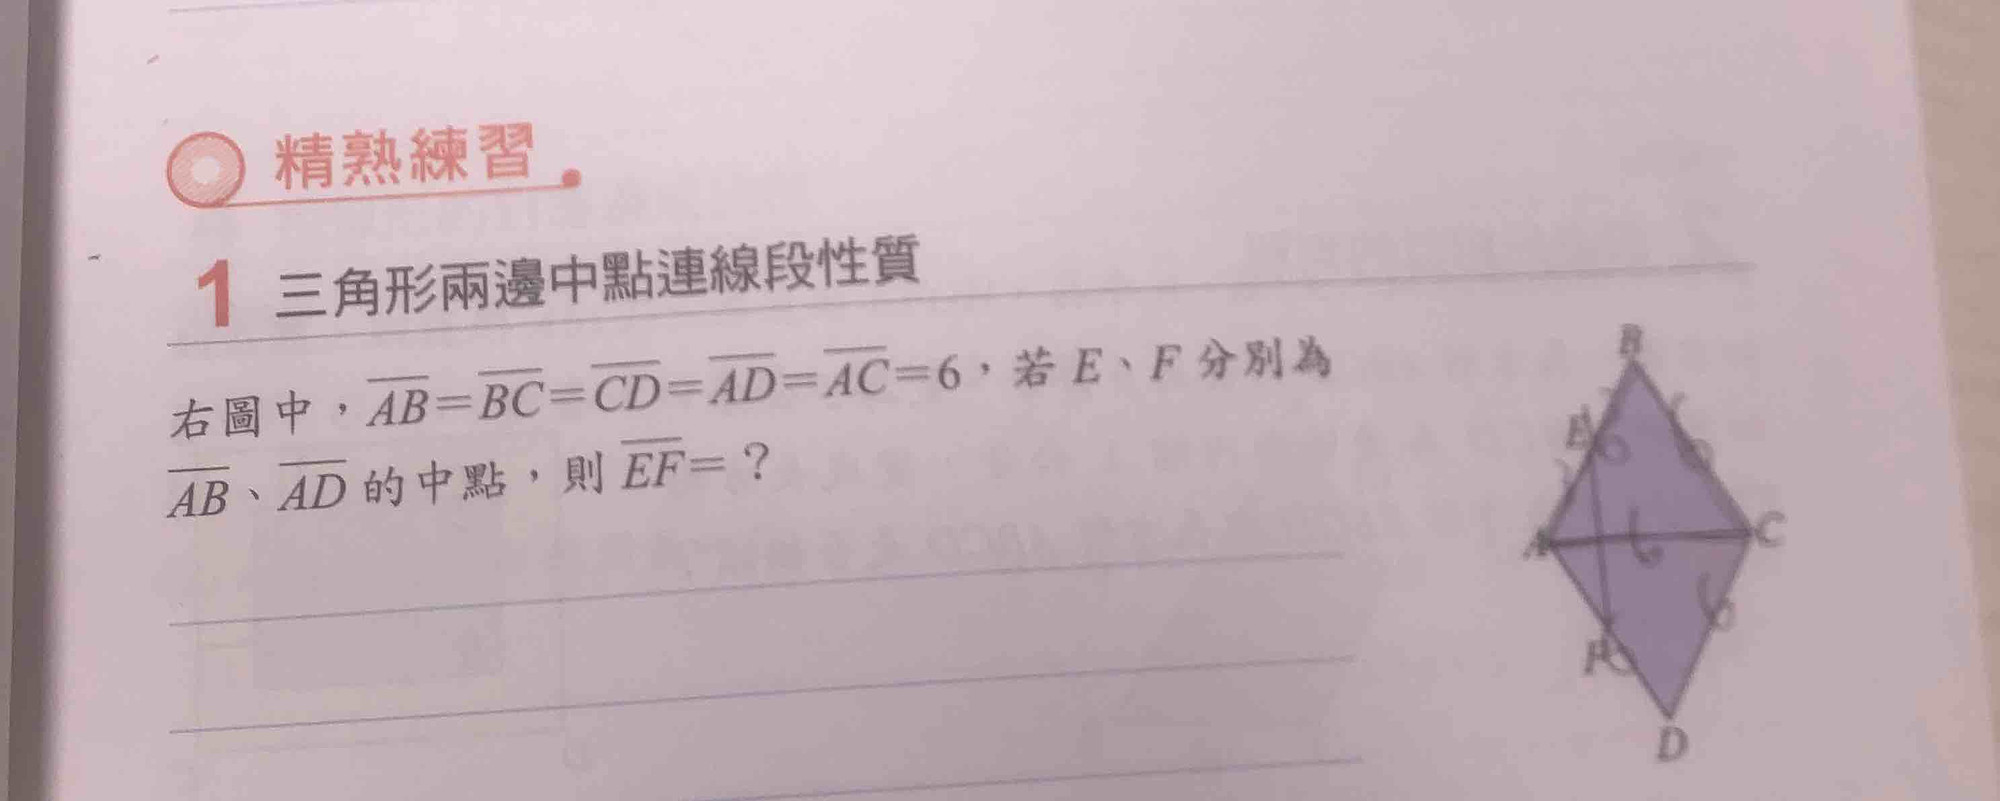 精熟練習
1 三角形兩邊中點連線段性質
右圖中，AB=BC=CD=AD=AC=6，若 E、F 分別為
AB、AD 的中點，則 EF=？
B
E
A
C
F
D